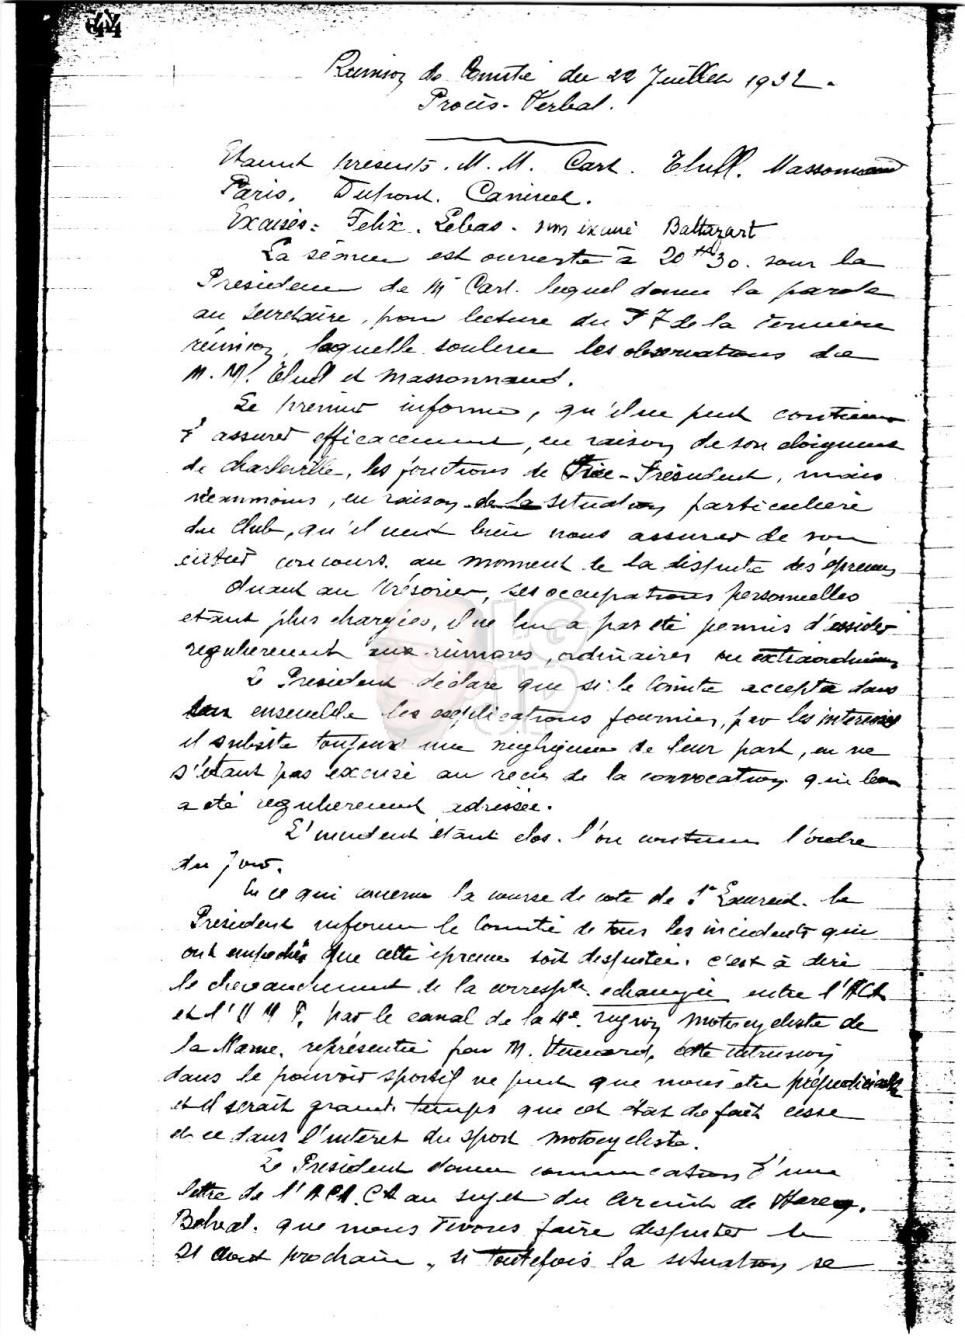 44
Réunion de Comité du 22 Juillet 1932.
Procès-Verbal.
Etaient présents. M.M. Cart. Thull. Massonnaud
Paris. Dupont. Caninet.
Excusés = Felix. Lebas. non excusé Baltazart
La séance est ouverte à 20 h 30. sous la
Présidence de Mr Cart. lequel donne la parole
au secrétaire, pour lecture du P V de la dernière
réunion, laquelle soulève les observations de
M.M. Thull et Massonnaud.
Le premier informe, qu'il ne peut continuer
d'assurer efficacement, en raison de son éloignement
de Charleville, les fonctions de Vice-Président, mais
néanmoins, en raison de la situation particulière
du Club, qu'il veut bien nous assurer de son
entier concours, au moment de la dispute des épreuves
Quant au trésorier, ses occupations personnelles
étant plus chargées, il ne lui a pas été permis d'assister
regulierement aux réunions, ordinaires ou extraordinaires
Le Président déclare que si le Comité accepte dans
son ensemble les explications fournies, par les intéressés
il subsiste toujours une négligence de leur part, en ne
s'étant pas excusé au reçu de la convocation qui leur
a été regulierement adressée.
L'incident étant clos. l'on continue l'ordre
du jour.
En ce qui concerne la course de cote de
Président informe le Comité de tous les incidents qui
ont empeché que cette épreuve soit disputée. c'est à dire
le chevauchement de la correspte echangée entre
et l'U M F, par le canal de la 4e region motocycliste de
la Marne, représentée par M. cette intrusion
dans le pouvoir sportif ne peut que nous être préjudiciable
et il serait grand temps que cet état de fait cesse
et ce dans l'interet du sport motocycliste.
Le Président donne communication d'une
lettre de au sujet du Circuit de
que nous devons faire disputer le
21 aout prochain, si toutefois la situation se
LG UP